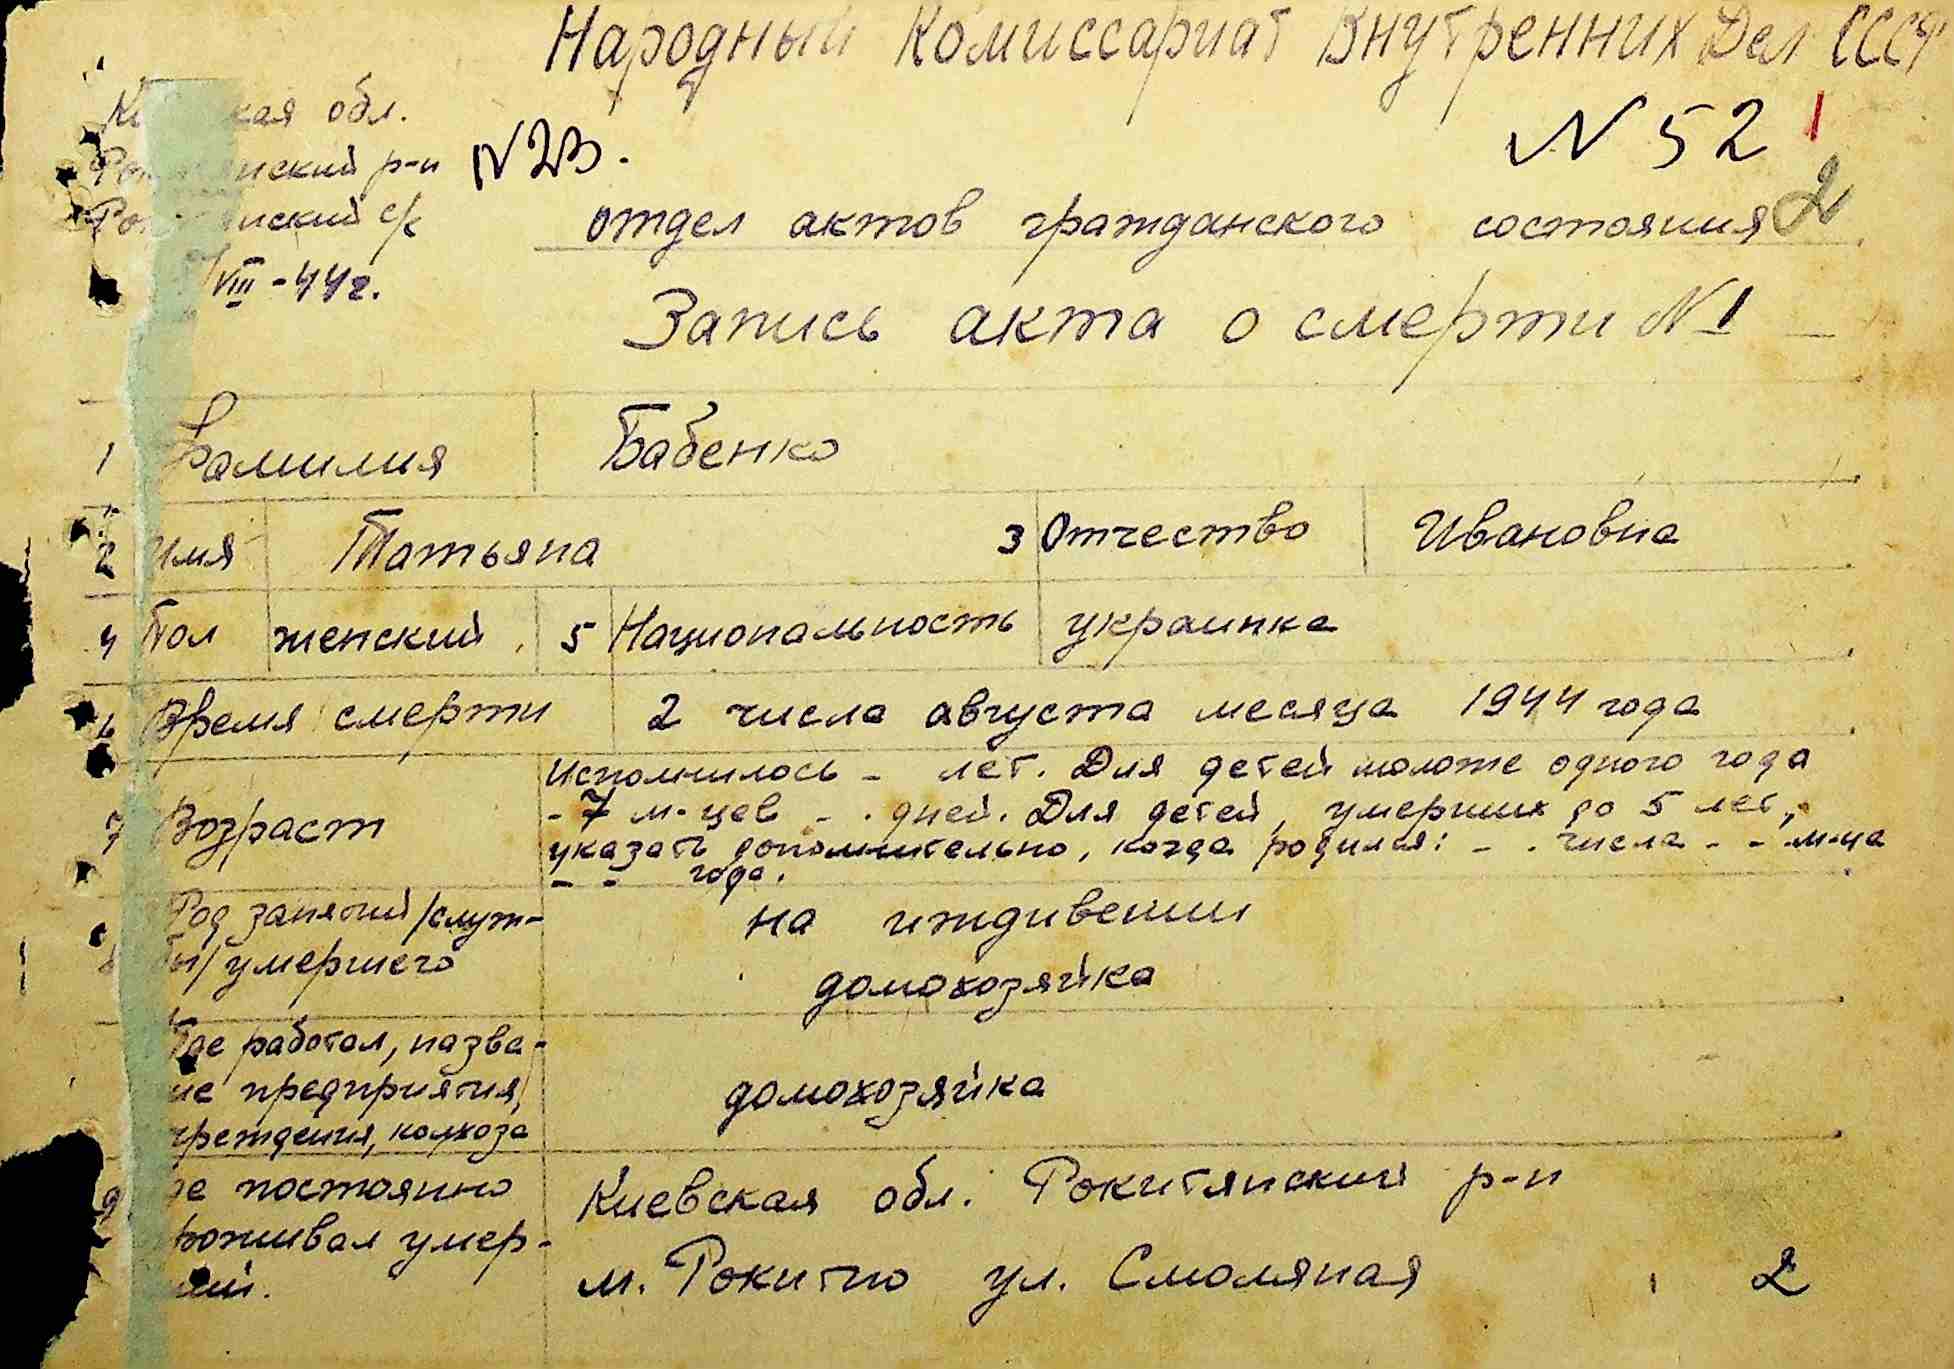 Народный Комиссариат Внутренних Дел СССР
кая обл.
нский р-н N23.
N 52 1
нский с/с
отдел актов гражданского состояния 2
VIII-44г.
Запись акта о смерти N1
1 Фамилия Бабенко
2 Имя Татьяна 3 Отчество Ивановна
4 Пол женский 5 Национальность украинка
6 Время смерти 2 числа августа месяца 1944 года
Исполнилось - лет. Для детей моложе одного года
7 Возраст - 7 м-цев - . дней. Для детей, умерших до 5 лет,
указать дополнительно, когда родился: - . числа - - м-ца
- - года.
Род занятий /служ- на иждивении
бы/ умершего
домохозяйка
Где работал, назва-
ие предприятия, домохозяйка
чреждения, колхоза
9 де постоянно Киевская обл. Рокитянский р-н
роживал умер-
ший. м. Рокитно ул. Смоляная 2